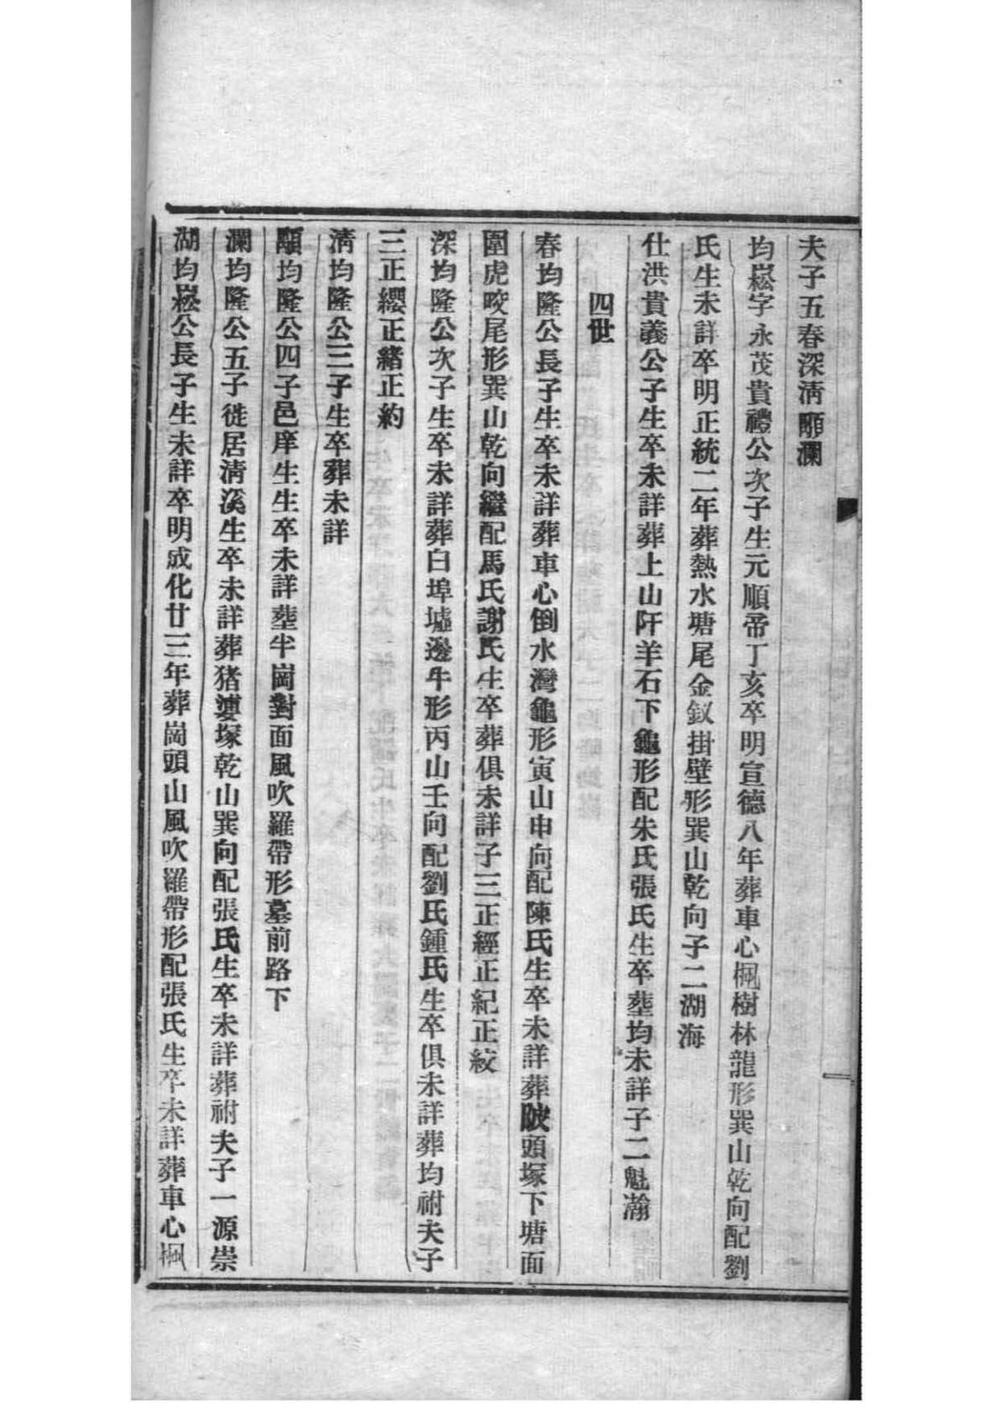 夫子五春深淸顒瀾
均崧字永茂貴禮公次子生元順帝丁亥卒明宣德八年葬車心楓樹林龍形巽山乾向配劉
氏生未詳卒明正統二年葬熱水塘尾金釵掛壁形巽山乾向子二湖海
仕洪貴義公子生卒未詳葬上山阡羊石下龜形配朱氏張氏生卒塟均未詳子二魁瀚
四世
春均隆公長子生卒未詳葬車心倒水灣龜形寅山申向配陳氏生卒未詳葬陂頭塚下塘面
圍虎咬尾形巽山乾向繼配馬氏謝氏生卒葬俱未詳子三正經正紀正紋
深均隆公次子生卒未詳葬白埠墟邊牛形丙山壬向配劉氏鍾氏生卒俱未詳葬均祔夫子
三正纓正緒正約
淸均隆公三子生卒葬未詳
顒均隆公四子邑庠生生卒未詳塟半崗對面風吹羅帶形墓前路下
瀾均隆公五子徙居淸溪生卒未詳葬猪婆塚乾山巽向配張氏生卒未詳葬祔夫子一源崇
湖均崧公長子生未詳卒明成化廿三年葬崗頭山風吹羅帶形配張氏生卒未詳葬車心楓